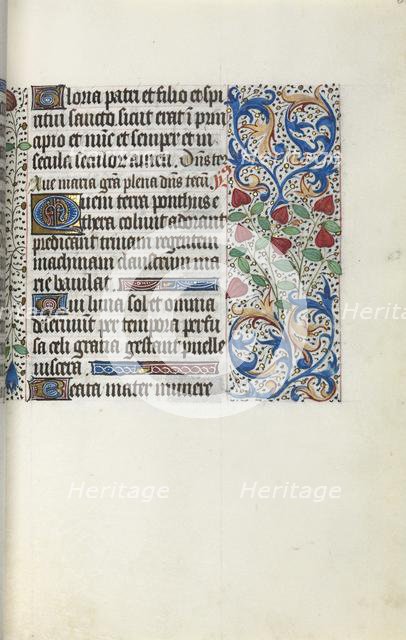 Gloria patri et filio et spi
ritui sancto sicut erat i prin
cipio et nūc et semper et in
secula seculorū amen. Dn̄s te
Aue maria grā plena dn̄s tecū.
Quem terra ponthus e
thera colunt adorant
predicant trinam regentem
machinam claustrum ma
rie baiulat
Cui luna sol et omnia
deseruiunt per tempora perfu
sa celi gratia gestant puelle
uiscera
Beata mater munere
Heritage
Heritage
Heritage
Heritage